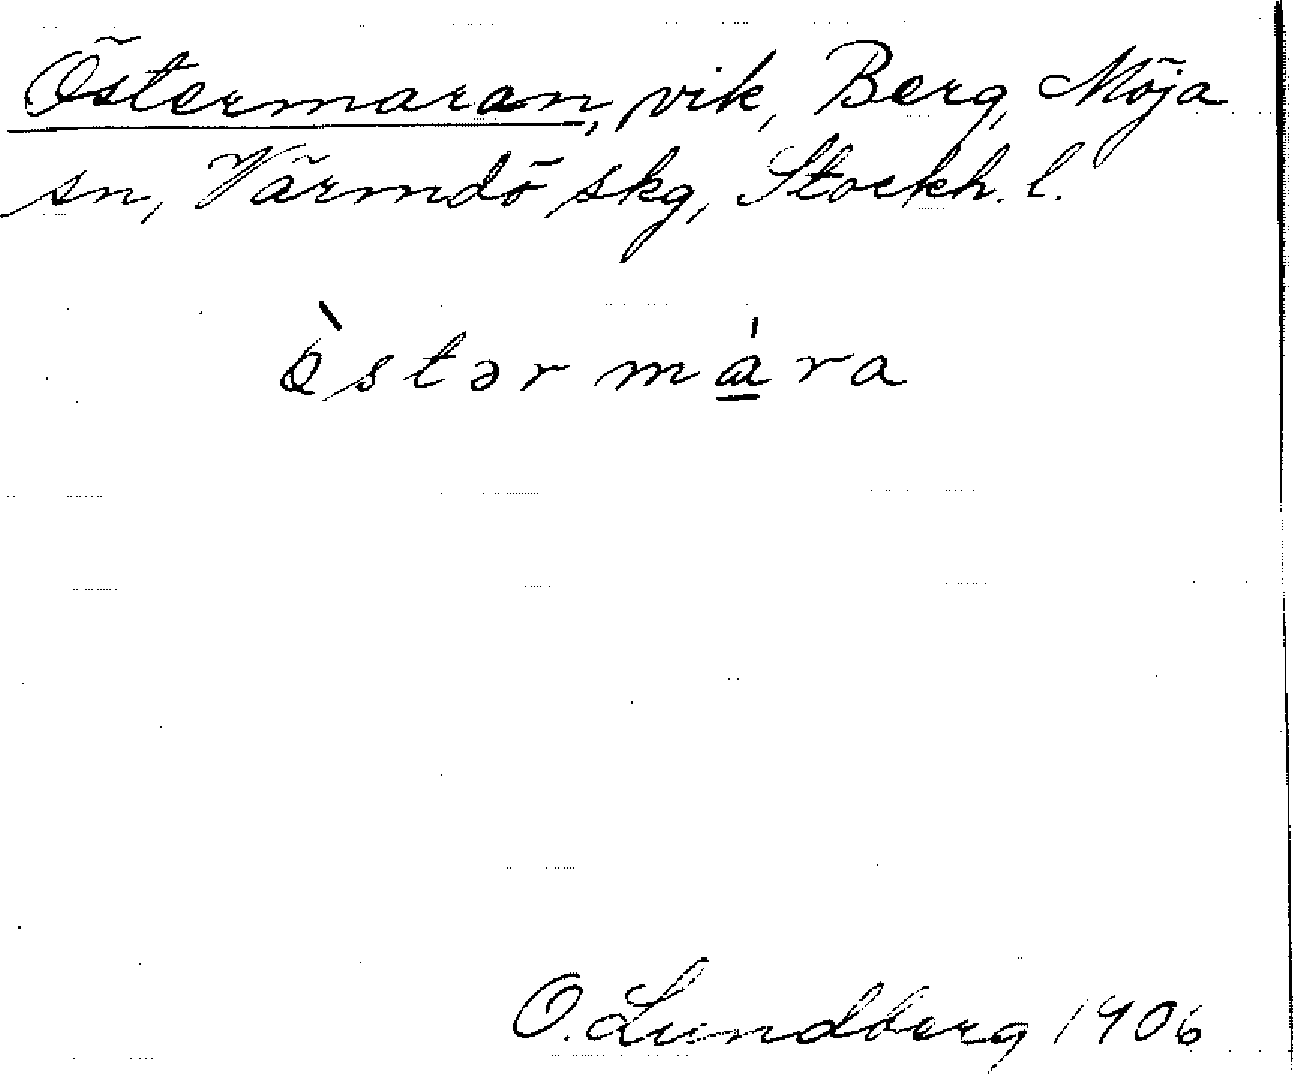 Östermaran, vik, Berg, Möja
sn, Värmdö skg, Stockh. l.
ǫ̀stər mɑ̱́ra
O. Lundberg 1906